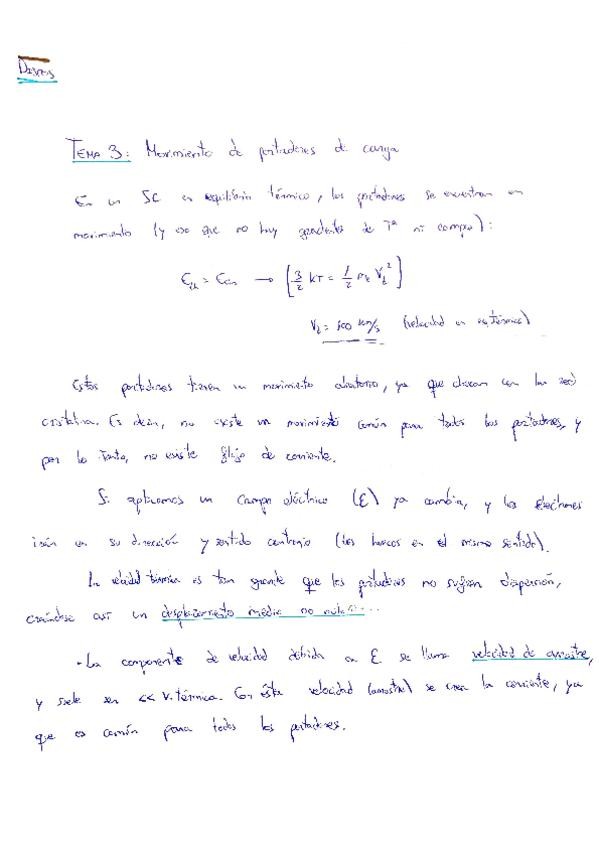 TEMA 3: Movimiento de portadores de carga
En un SC en equilibrio térmico, los portadores se encuentran en
movimiento (y eso que no hay gradiente de Tª ni campo):
= → [3/2 kT = 1/2 V²]
= 100 km/s (velocidad en eq. térmico)
Estos portadores tienen un movimiento aleatorio, ya que chocan con la red
cristalina. Es decir, no existe un movimiento común para todos los portadores, y
por lo tanto, no existe flujo de corriente.
Si aplicamos un campo eléctrico (E) ya cambia, y los electrones
irán en su dirección y sentido contrario (los huecos en el mismo sentido).
La velocidad térmica es tan grande que los portadores no sufren dispersión,
creándose así un desplazamiento medio no nulo...
- La componente de velocidad debida a E se llama velocidad de arrastre,
y suele ser << V. térmica. Con ésta velocidad (arrastre) se crea la corriente, ya
que es común para todos los portadores.